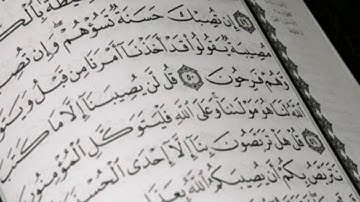 بِٱلْكَ
إِن تُصِبْكَ حَسَنَةٌ تَسُؤْهُمْ وَإِن تُصِ
مُصِيبَةٌ يَقُولُوا۟ قَدْ أَخَذْنَآ أَمْرَنَا مِن قَبْلُ وَيَتَوَ
وَّهُمْ فَرِحُونَ ٥٠ قُل لَّن يُصِيبَنَآ إِلَّا مَا كَتَبَ
ٱللَّهُ لَنَا هُوَ مَوْلَىٰنَا وَعَلَى ٱللَّهِ فَلْيَتَوَكَّلِ ٱلْمُؤْمِنُو
قُلْ هَلْ تَرَبَّصُونَ بِنَآ إِلَّآ إِحْدَى ٱلْحُسْنَ
نَتَرَبَّصُ بِكُمْ أَن يُصِيبَكُمُ ٱللَّهُ بِعَذَا